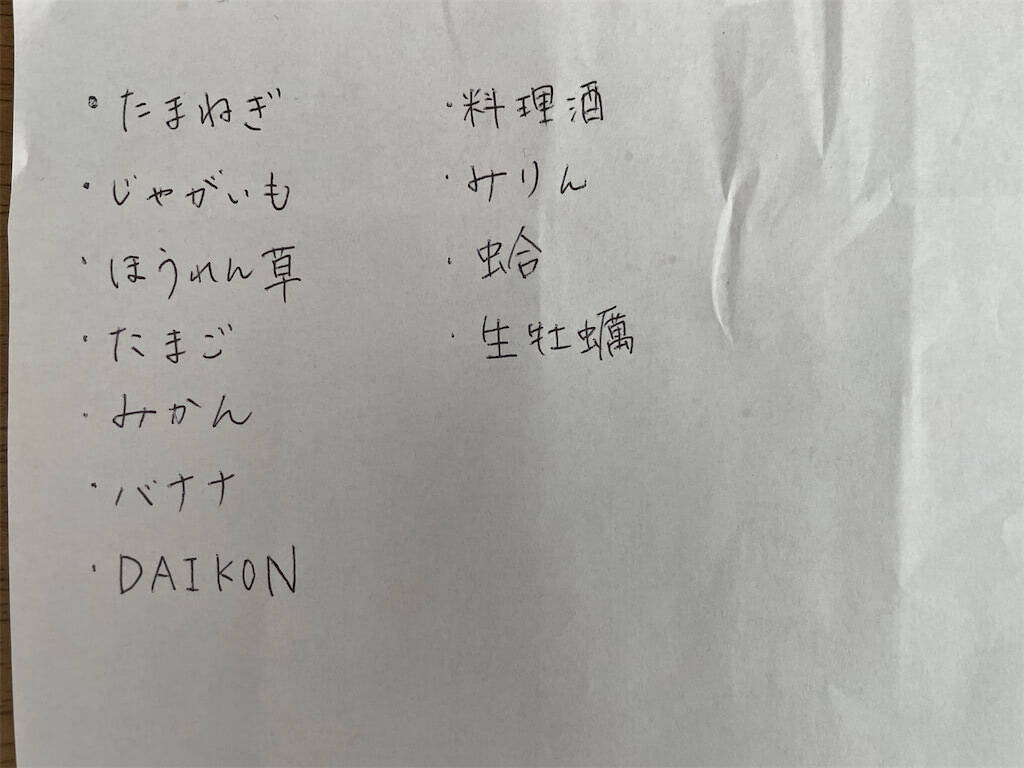 ・たまねぎ
・じゃがいも
・ほうれん草
・たまご
・みかん
・バナナ
・DAIKON
・料理酒
・みりん
・蛤
・生牡蠣